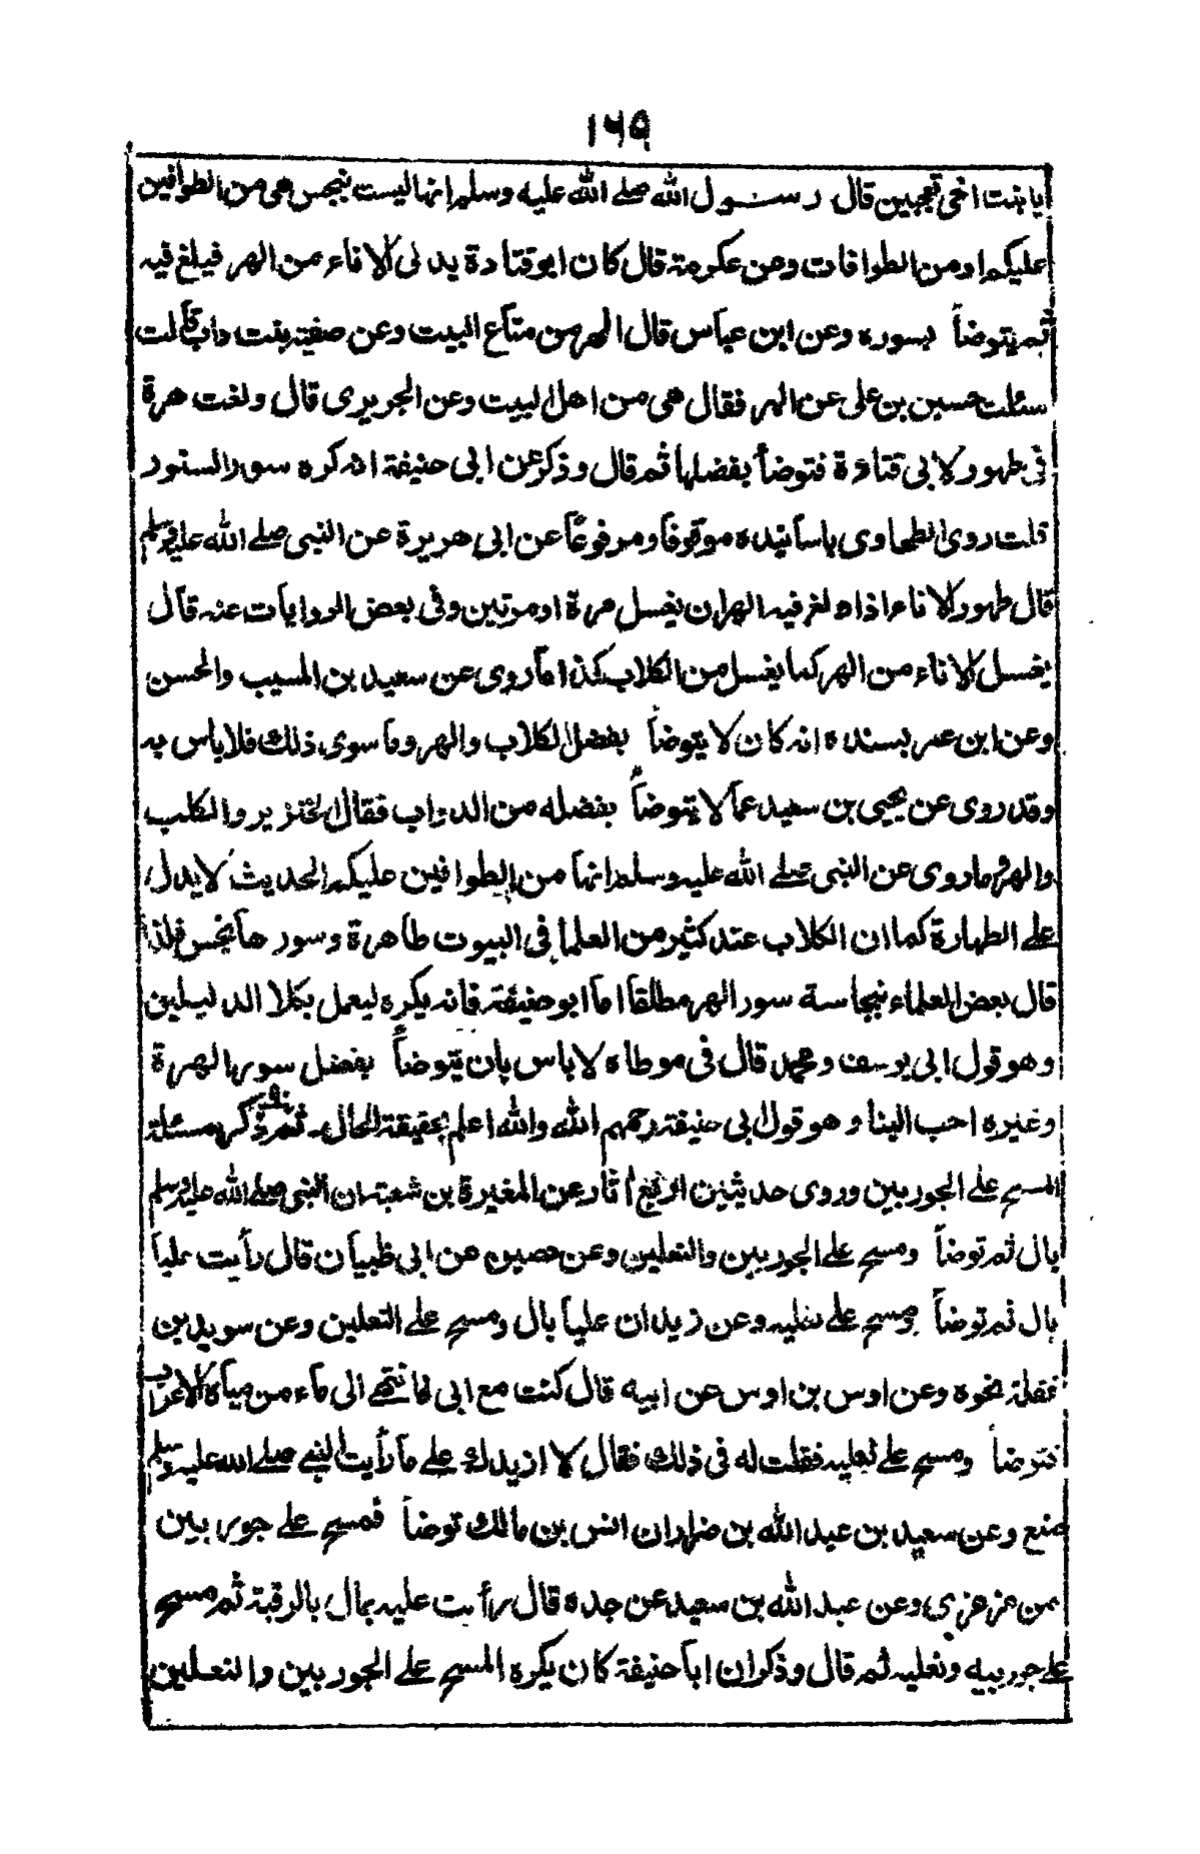 ١٦٥
يا بنت اخى تعجبين قال رسول الله صلے الله عليه وسلم انها ليست بنجس هى من الطوافين
عليكم او من الطوافات وعن عكرمة قال كان ابو قتادة يدلى الاناء من الهر فيلغ فيه
ثم يتوضأ بسوره وعن ابن عباس قال الهر من متاع البيت وعن صفية بنت داب قالت
سئلت حسين بن على عن الهر فقال هى من اهل البيت وعن الجريرى قال ولغت هرة
فى طهور لابى قتادة فتوضأ بفضلها ثم قال وذكر عن ابى حنيفة انه كره سور السنور
قلت روى الطحاوى باسانيده موقوفا ومرفوعا عن ابى هريرة عن النبى صلے الله عليه وسلم
قال طهور الاناء اذا ولغ فيه الهر ان يغسل مرة او مرتين وفى بعض الروايات عنه قال
يغسل الاناء من الهر كما يغسل من الكلاب كذا ما روى عن سعيد بن المسيب والحسن
وعن ابن عمر بسنده انه كان لا يتوضأ بفضل الكلاب والهر وما سوى ذلك فلا باس به
وقد روى عن يحيى بن سعيد عما لا يتوضأ بفضله من الدواب فقال الخنزير والكلب
والهر وما روى عن النبى صلے الله عليه وسلم انها من الطوافين عليكم الحديث لا يدل
على الطهارة كما ان الكلاب عند كثير من العلما فى البيوت طاهرة وسورها نجس فلذا
قال بعض العلماء نجاسة سور الهر مطلقا اما ابو حنيفة فانه يكره ليعمل بكلا الدليلين
وهو قول ابى يوسف ومحمد قال فى موطاه لا باس بان يتوضأ بفضل سور الهرة
وغيره احب الينا وهو قول ابى حنيفة رحمهم الله والله اعلم بحقيقة الحال ثم ذكر مسئلة
المسح علے الجوربين وروى حديثين اربع اثار عن المغيرة بن شعبة ان النبى صلے الله عليه وسلم
بال ثم توضأ ومسح علے الجوربين والنعلين وعن حصين عن ابى ظبيان قال رأيت عليا
بال ثم توضأ ومسح علے نعليه وعن زيد ان عليا بال ومسح علے النعلين وعن سويد بن
غفلة نحوه وعن اوس بن اوس عن ابيه قال كنت مع ابى فانتهى الى ماء من مياه الاعراب
فتوضأ ومسح علے نعليه فقلت له فى ذلك فقال لا ازيدك علے ما رأيت النبى صلے الله عليه وسلم
صنع وعن سعيد بن عبد الله بن ضرار ان انس بن مالك توضأ فمسح علے جوربين
من مرعزى وعن عبد الله بن سعيد عن جده قال رأيت عليه بال بالرقبة ثم مسح
علے جوربيه ونعليه ثم قال وذكر ان ابا حنيفة كان يكره المسح علے الجوربين والنعلين